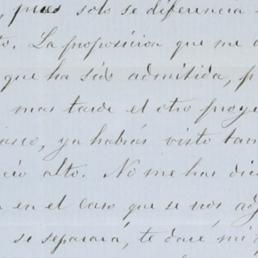 pues solo se diferencia
to. La proposicion que me
que ha sido admitida, p
mas tarde el otro proye
asco, ya habras visto tam
cio alto. No me has dic
en el caso que se nos ad
se separará, te daré mi